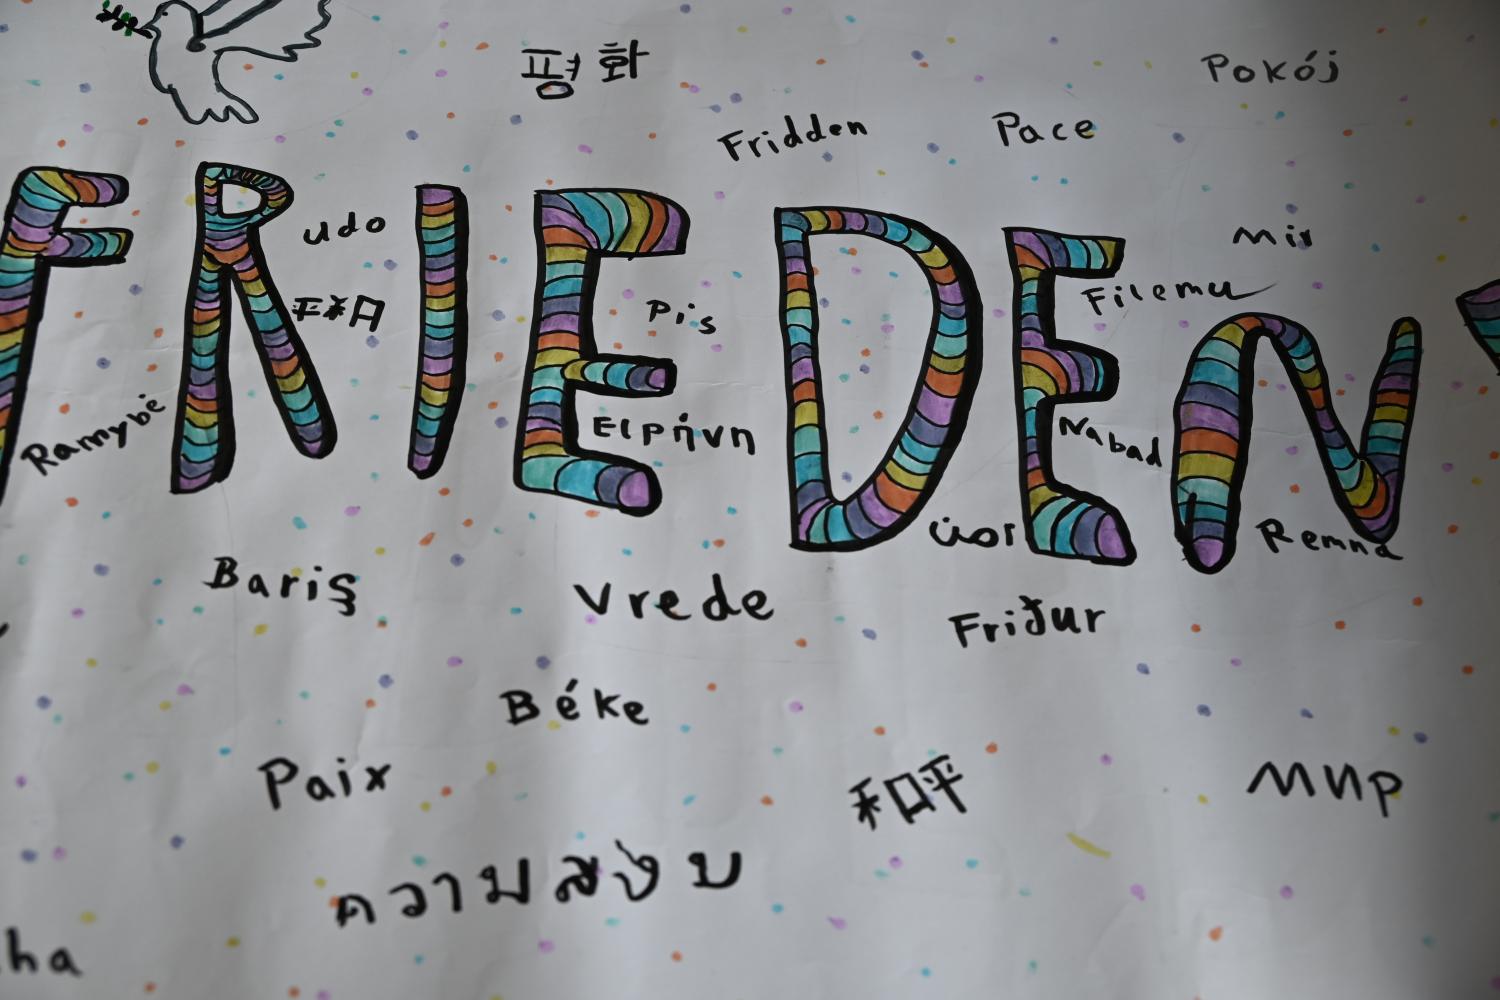 평화
Pokój
Fridden
Pace
FRIEDEN
udo
Mir
Filemu
平和
Pis
Ramybė
Ειρήνη
Nabad
Remnd
Bariş
Vrede
Friður
Béke
Paix
和平
мир
ความสงบ
ha